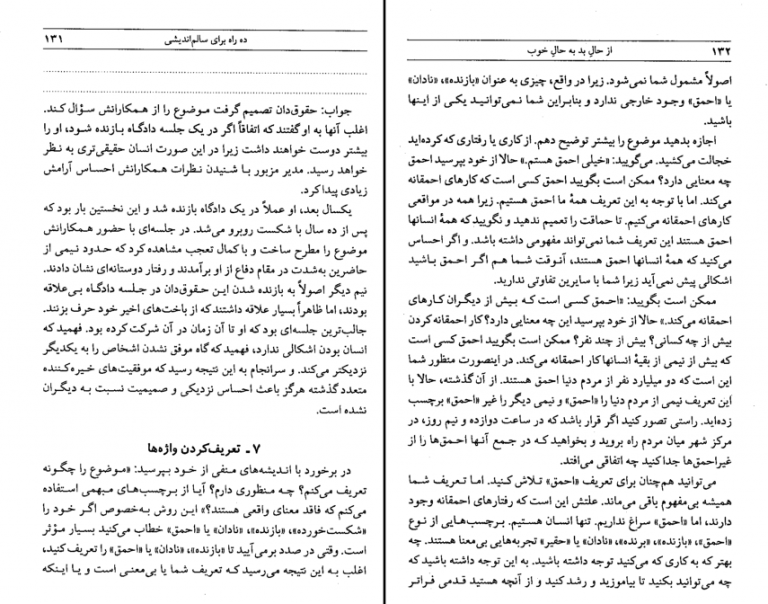 ۱۳۱ ده راه برای سالم‌اندیشی
جواب: حقوق‌دان تصمیم گرفت موضوع را از همکارانش سؤال کند.
اغلب آنها به او گفتند که اتفاقاً اگر در یک جلسه دادگاه بازنده شود، او را
بیشتر دوست خواهند داشت زیرا در این صورت انسان حقیقی‌تری به نظر
خواهد رسید. مدیر مزبور با شنیدن نظرات همکارانش احساس آرامش
زیادی پیدا کرد.
یکسال بعد، او عملاً در یک دادگاه بازنده شد و این نخستین بار بود که
پس از ده سال با شکست روبرو می‌شد. در جلسه‌ای با حضور همکارانش
موضوع را مطرح ساخت و با کمال تعجب مشاهده کرد که حدود نیمی از
حاضرین به‌شدت در مقام دفاع از او برآمدند و رفتار دوستانه‌ای نشان دادند.
نیم دیگر اصولاً به بازنده شدن این حقوق‌دان در جلسه دادگاه بی‌علاقه
بودند، اما ظاهراً بسیار علاقه داشتند که از باخت‌های اخیر خود حرف بزنند.
جالب‌ترین جلسه‌ای بود که او تا آن زمان در آن شرکت کرده بود. فهمید که
انسان بودن اشکالی ندارد، فهمید که گاه موفق نشدن اشخاص را به یکدیگر
نزدیکتر می‌کند. و سرانجام به این نتیجه رسید که موفقیت‌های خیره‌کننده
متعدد گذشته هرگز باعث احساس نزدیکی و صمیمیت نسبت به دیگران
نشده است.
۷ ـ تعریف‌کردن واژه‌ها
در برخورد با اندیشه‌های منفی از خود بپرسید: «موضوع را چگونه
تعریف می‌کنم؟ چه منظوری دارم؟ آیا از برچسب‌های مبهمی استفاده
می‌کنم که فاقد معنای واقعی هستند؟» این روش به‌خصوص اگر خود را
«شکست‌خورده»، «بازنده»، «نادان» یا «احمق» خطاب می‌کنید بسیار مؤثر
است. وقتی در صدد برمی‌آیید تا «بازنده»، «نادان» یا «احمق» را تعریف کنید،
اغلب به این نتیجه می‌رسید که تعریف شما یا بی‌معنی است و یا اینکه
۱۳۲ از حال بد به حال خوب
اصولاً مشمول شما نمی‌شود. زیرا در واقع، چیزی به عنوان «بازنده»، «نادان»
یا «احمق» وجود خارجی ندارد و بنابراین شما نمی‌توانید یکی از اینها
باشید.
اجازه بدهید موضوع را بیشتر توضیح دهم. از کاری یا رفتاری که کرده‌اید
خجالت می‌کشید. می‌گویید: «خیلی احمق هستم.» حالا از خود بپرسید احمق
چه معنایی دارد؟ ممکن است بگویید احمق کسی است که کارهای احمقانه
می‌کند. اما با توجه به این تعریف همهٔ ما احمق هستیم. زیرا همه در مواقعی
کارهای احمقانه می‌کنیم. تا حماقت را تعمیم ندهید و نگویید که همهٔ انسانها
احمق هستند این تعریف شما نمی‌تواند مفهومی داشته باشد. و اگر احساس
می‌کنید که همهٔ انسانها احمق هستند، آنوقت شما هم اگر احمق باشید
اشکالی پیش نمی‌آید زیرا شما با سایرین تفاوتی ندارید.
ممکن است بگویید: «احمق کسی است که بیش از دیگران کارهای
احمقانه می‌کند.» حالا از خود بپرسید این چه معنایی دارد؟ کار احمقانه کردن
بیش از چه کسانی؟ بیش از چند نفر؟ ممکن است بگویید احمق کسی است
که بیش از نیمی از بقیهٔ انسانها کار احمقانه می‌کند. در اینصورت منظور شما
این است که دو میلیارد نفر از مردم دنیا احمق هستند. از آن گذشته، حالا با
این تعریف نیمی از مردم دنیا را «احمق» و نیمی دیگر را غیر «احمق» برچسب
زده‌اید. راستی تصور کنید اگر قرار باشد که در ساعت دوازده و نیم روز، در
مرکز شهر میان مردم راه بروید و بخواهید که در جمع آنها احمق‌ها را از
غیراحمق‌ها جدا کنید چه اتفاقی می‌افتد.
می‌توانید هم‌چنان برای تعریف «احمق» تلاش کنید. اما تعریف شما
همیشه بی‌مفهوم باقی می‌ماند. علتش این است که رفتارهای احمقانه وجود
دارند، اما «احمق» سراغ نداریم. تنها انسان هستیم. برچسب‌هایی از نوع
«احمق»، «بازنده»، «برنده»، «نادان» یا «حقیر» تجربه‌هایی بی‌معنا هستند. چه
بهتر که به کاری که می‌کنید توجه داشته باشید. به این توجه داشته باشید که
چه می‌توانید بکنید تا بیاموزید و رشد کنید و از آنچه هستید قدمی فراتر